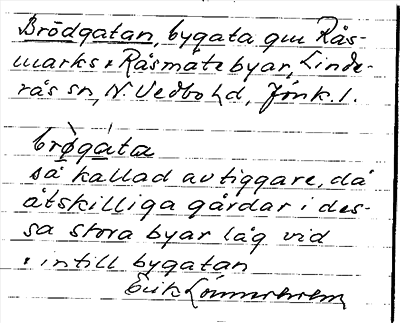 Brödgatan, bygata gm Rås-
marks o Råsmate byar, Linde-
rås sn, N. Vedbo hd, Jönk. l.
brøgata
så kallad av tiggare, då
åtskilliga gårdar i des-
sa stora byar låg vid
o intill bygatan
Erik